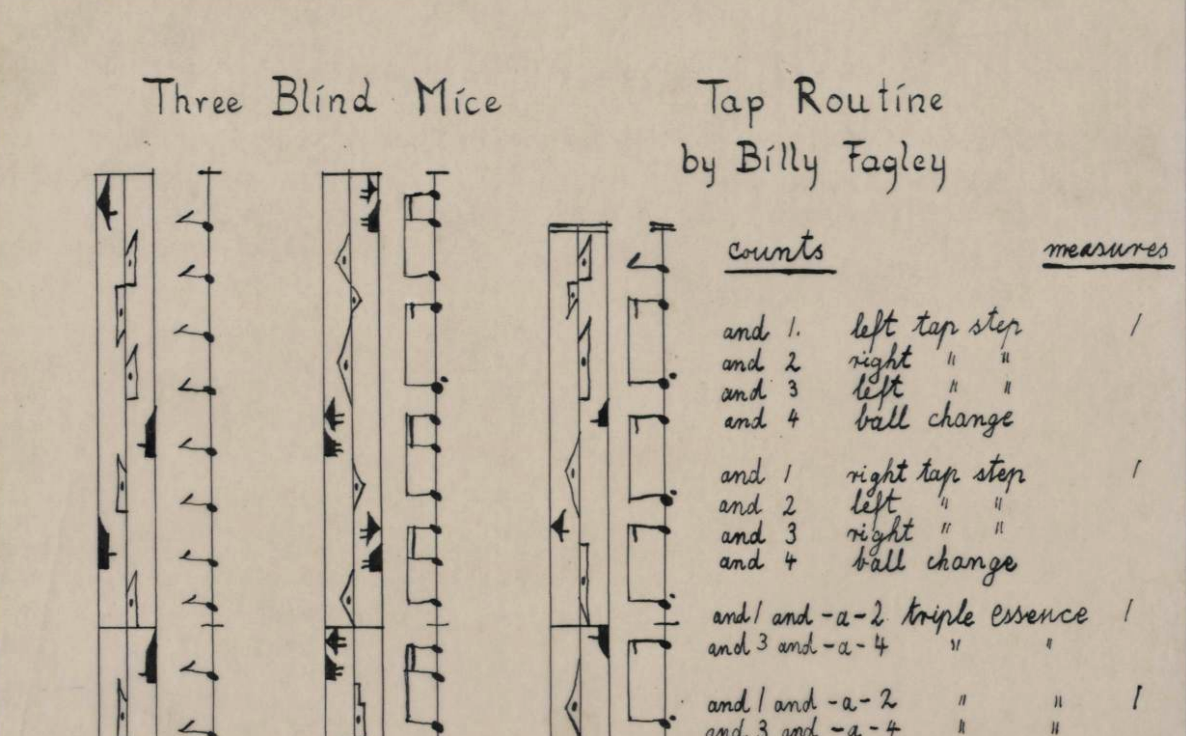 Three Blind Mice
Tap Routine
by Billy Fagley
counts measures
and 1. left tap step 1
and 2 right " "
and 3 left " "
and 4 ball change
and 1 right tap step 1
and 2 left " "
and 3 right " "
and 4 ball change
and 1 and -a-2 triple essence 1
and 3 and -a-4 " "
and 1 and -a-2 " " 1
and 3 and -a-4 " "